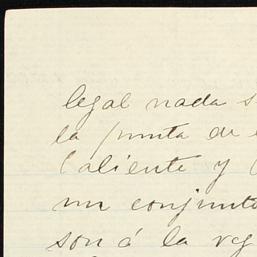 legal nada s
la punta de
Caliente y
un conjunto
son á la reg